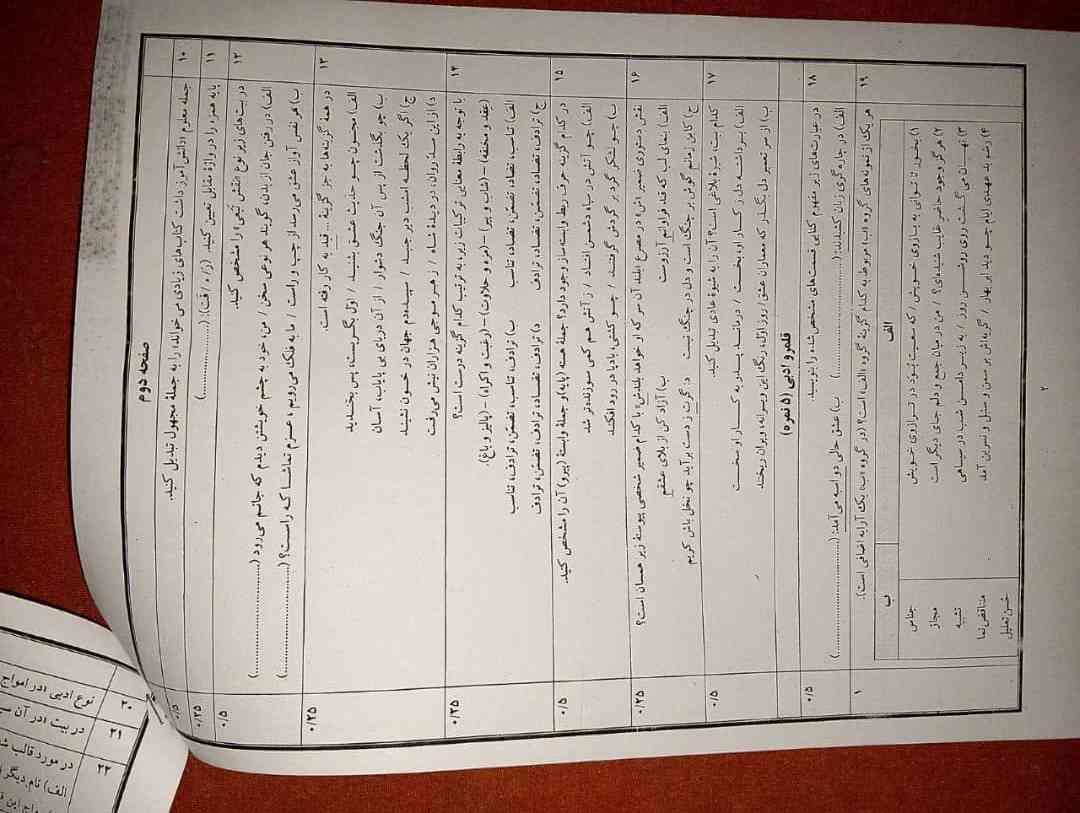 ۲
صفحه دوم
۱۰ جمله معلوم «دانش‌آموز داشت کتاب‌های زیادی می‌خواند» را به جملهٔ مجهول تبدیل کنید. ۰/۵
۱۱ پایه همزه را در واژهٔ مقابل تعیین کنید. (رَ / ءْ / فَت): (....................) ۰/۲۵
۱۲ در بیت‌های زیر نوع «نقش تَبَعی» را مشخص کنید. ۰/۵
الف) در رفتن جان از بدن، گویند هر نوعی سخن / من، خود به چشم خویشتن دیدم که جانم می‌رود (....................)
ب) هر نفس آواز عشق می‌رسد از چپ و راست / ما به فلک می‌رویم، عزم تماشا که راست؟ (....................)
۱۳ در همهٔ گزینه‌ها به جز گزینهٔ ... قید به کار رفته است. ۰/۲۵
الف) محسرم چو حدیث عشق بشنید / اوّل بگریست، پس بخندید
ب) چو بگذشت از پس آن جنگ دشوار / از آن دریای بی پایاب، آسان
ج) اگر یک لحظه امشب دیر جنبد / سپیده‌دم جهان در خون نشیند
د) از این سدّ روان، در دیدهٔ شاه / ز هر موجی هزاران نیش می‌رفت
۱۴ با توجه به رابطهٔ معنایی ترکیبات زیر، به ترتیب کدام گزینه درست است؟ ۰/۲۵
(عِقد و مخنقه) - (شاب و پیر) - (مزه و حلاوت) - (رغبت و اکراه) - (پالیز و باغ).
الف) تناسب، تضاد، تضمّن، تضاد، تناسب ب) ترادف، تناسب، تضمّن، ترادف، تناسب
ج) ترادف، تضاد، تضمّن، تضاد، ترادف د) ترادف، تضاد، ترادف، تضمّن، ترادف
۱۵ در کدام گزینه حرف ربط وابسته ساز وجود دارد؟ جملهٔ هسته (پایه) و جملهٔ وابسته (پیرو) آن را مشخص کنید. ۰/۵
الف) چو آتش در سپاه دشمن افتاد / ز آتش هم کمی سوزنده‌تر شد
ب) چو لشکر گرد بر گردش گرفتند / چو کشتی، بادپا در رود افکند
۱۶ نقش دستوری ضمیر «اش» در مصرع «بلند آن سر که او خواهد بلندش» با کدام ضمیر شخصی پیوستهٔ زیر همسان است؟ ۰/۲۵
الف) بنمای لب که قند فراوانم آرزوست ب) آزاد کن از بلای عشقم
ج) کاین زمانم گوش بر چنگ است و دل در چنگ نیست د: گرت ز دست برآید چو نخل باش کریم
۱۷ کدام بیت شیوهٔ بلاغی است؟ آن را به شیوهٔ عادی تبدیل کنید. ۰/۵
الف) برداشته دل ز کار او، بخت / درماند پدر به کار او سخت
ب) از سر تعمیر دل بگذر که معماران عشق / روز اوّل، رنگ این ویرانه، ویران ریختند
قلمرو ادبی (۵ نمره)
۱۸ در عبارت‌های زیر مفهوم کنایی قسمت‌های مشخص شده را بنویسید. ۰/۵
الف) در چاره‌گری زبان کشیدند: (....................) ب) عشق حالی دو اسبه می‌آمد: (....................)
۱۹ هر یک از نمونه‌های گروه «ب» مربوط به کدام گزینهٔ گروه «الف» است؟ (در گروه «ب»، یک آرایه اضافی است). ۱
الف ب
۱) بخور تا توانی به بازوی خویش / که سعیت بُود در ترازوی خویش جناس
۲) هرگز وجود حاضر غایب شنیده‌ای؟ / من در میان جمع و دلم جای دیگر است مجاز
۳) نهان می‌گشت روی روشن روز / به زیر دامن شب در سیاهی تشبیه
۴) رسد بدعهدی ایام چو دید ابر بهار / گریه‌اش بر سمن و سنبل و نسرین آمد متناقض‌نما
حُسن تعلیل
۲۰ نوع ادبی «در امواج
۲۱ در بیت «در آن
۲۲ در مورد قالب
الف) نام دیگر